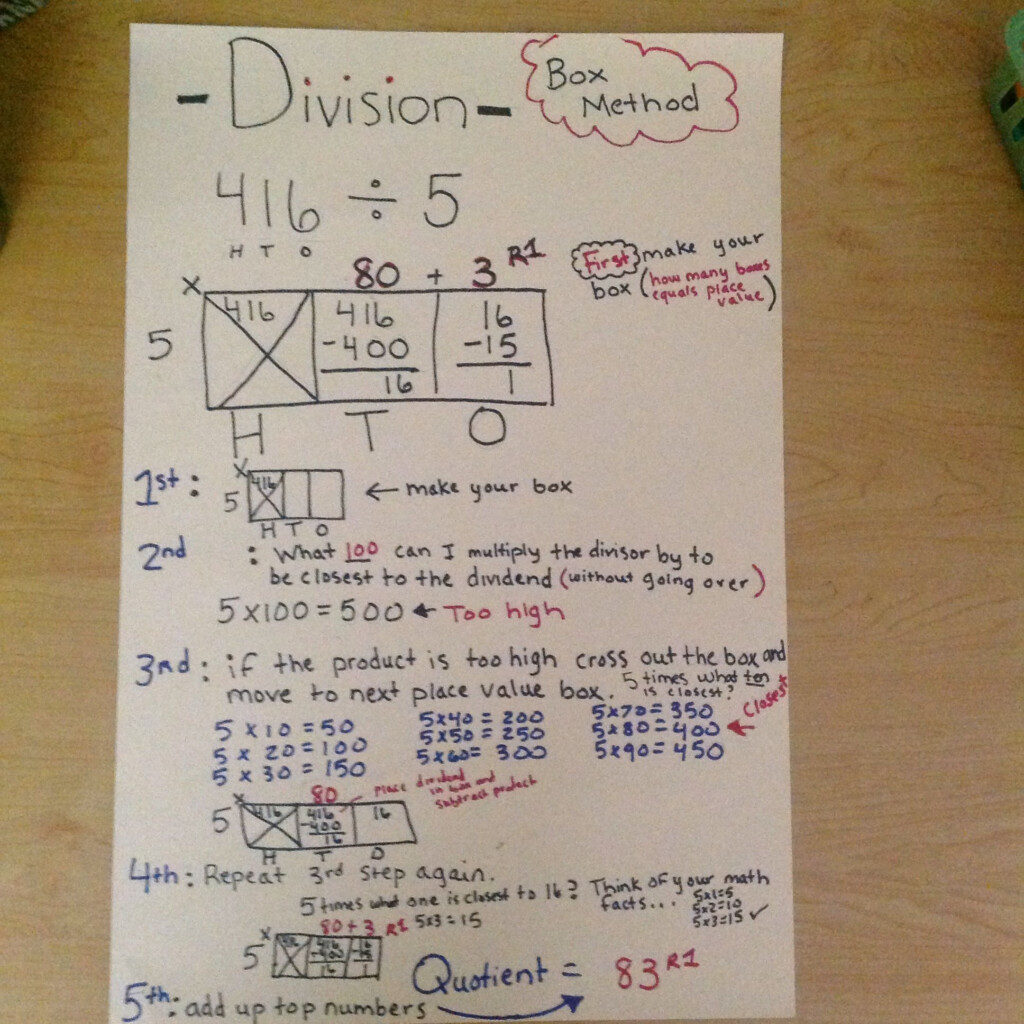 - Division -
Box
Method
416 ÷ 5
H T O
80 + 3 R1
First make your
box (how many boxes
equals place
value)
X
5
416
416
-400
16
16
-15
1
H T O
1st: X 5 416 ← make your box
H T O
2nd : What 100 can I multiply the divisor by to
be closest to the dividend (without going over)
5 x 100 = 500 ← Too high
3rd: if the product is too high cross out the box and
move to next place value box. 5 times what ten
is closest?
5 x 10 = 50
5 x 20 = 100
5 x 30 = 150
5x40 = 200
5x50 = 250
5x60 = 300
5x70 = 350
5x80 = 400 ← Closest
5x90 = 450
80
place dividend
in box and
subtract product
X
5
416
416
-400
16
16
H T O
4th: Repeat 3rd step again.
5 times what one is closest to 16? Think of your math
facts... 5x1=5
5x2=10
5x3=15 ✓
80 + 3 R1 5x3=15
X
5
416
416
-400
16
16
-15
1
Quotient = 83 R1
5th: add up top numbers